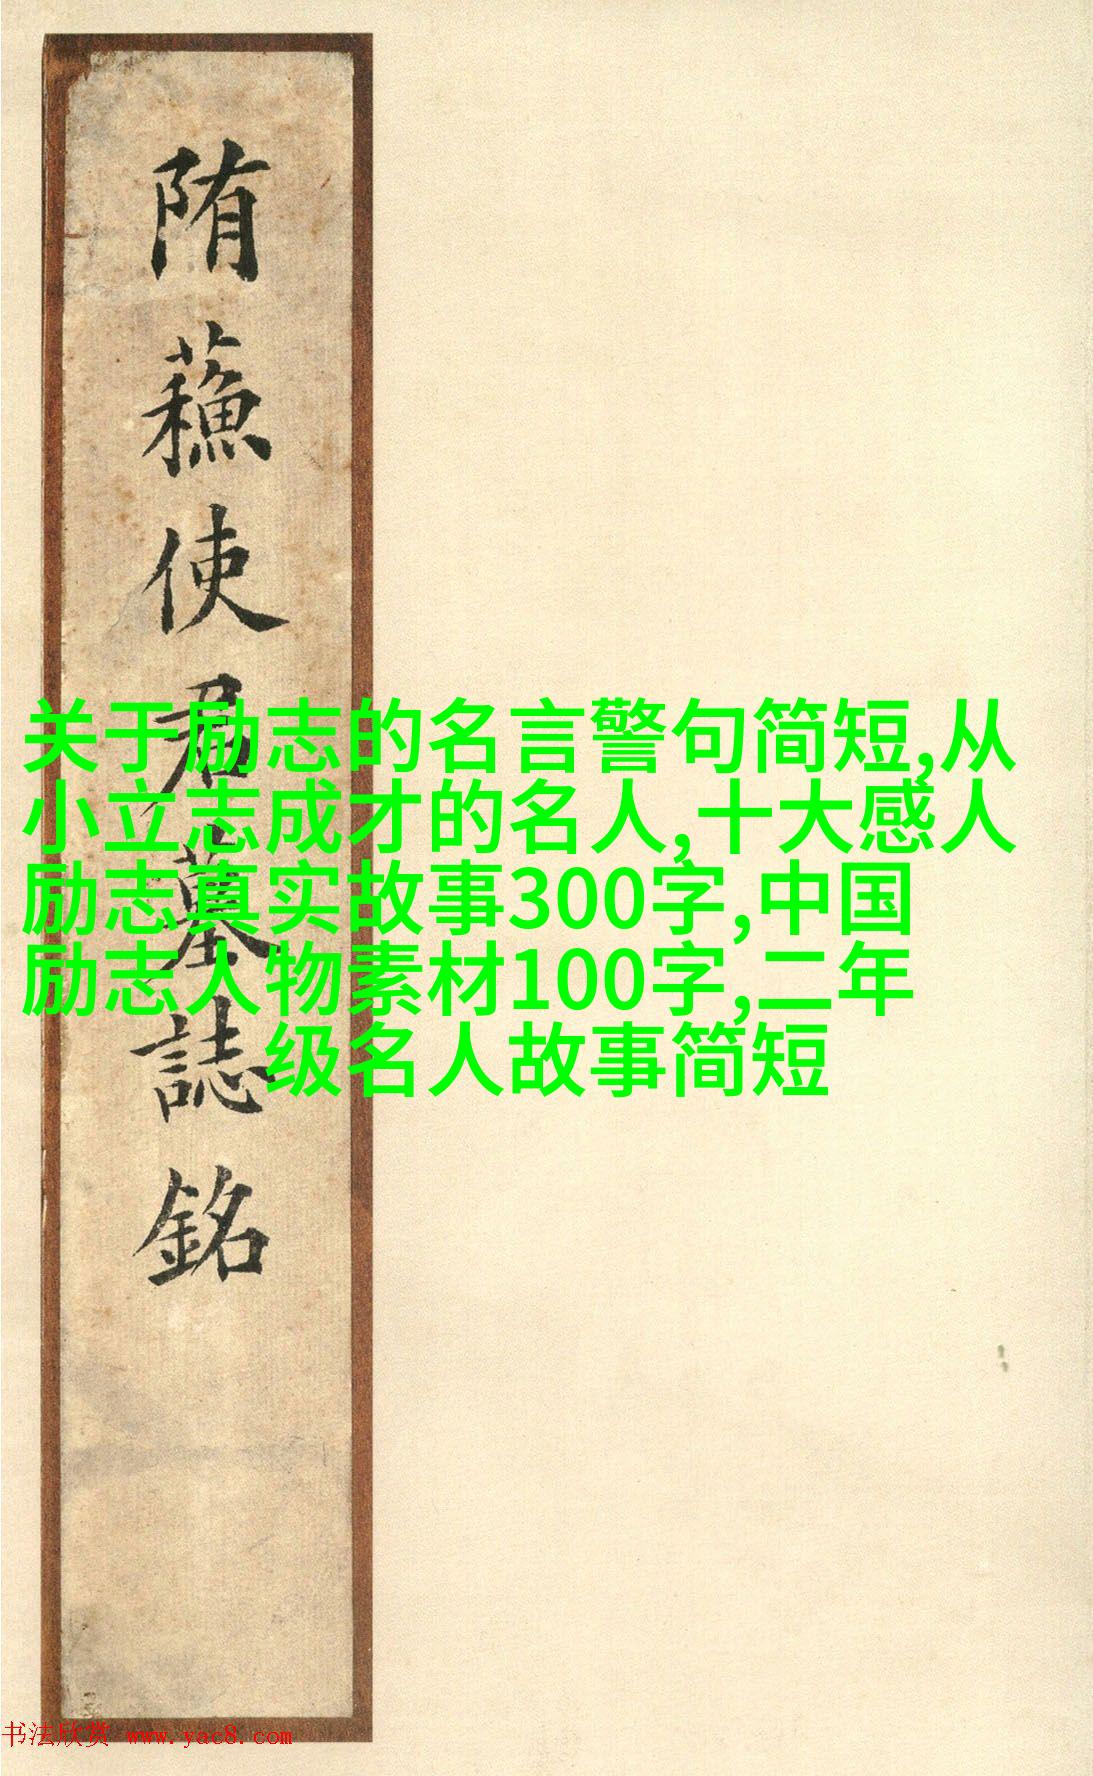 隋蘓使君墓誌銘
关于励志的名言警句简短,从
小立志成才的名人,十大感人
励志真实故事300字,中国
励志人物素材100字,二年
级名人故事简短
书法欣赏 www.yac8.com